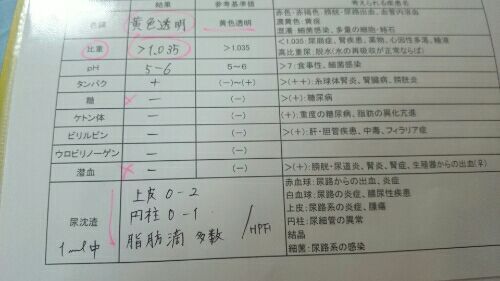 結果 参考基準値 考えられる疾患名
色調 黄色透明 黄色透明 赤色・赤褐色:膀胱・尿路出血、血管内溶血
濃黄色:黄疸
混濁:細菌感染、多量の細胞・結石
比重 >1.035 >1.035 <1.035:尿崩症、腎疾患、薬物、心因性多渇、輸液
高比重尿:脱水(水の再吸収が正常ならば)
pH 5-6 5~6 >7:食事性、細菌感染
タンパク + (-)~(+) >(++):糸球体腎炎、腎臓病、膀胱炎
糖 - (-) >(+):糖尿病
ケトン体 - (-) (+):重度の糖尿病、脂肪の異化亢進
ビリルビン - (-) >(+):肝・胆管疾患、中毒、フィラリア症
ウロビリノーゲン - (-)
潜血 - (-) >(+):膀胱・尿道炎、腎炎、腎症、生殖器からの出血(♀)
尿沈渣 上皮 0-2 赤血球:尿路からの出血、炎症
白血球:尿路の炎症、腸尿性疾患
円柱 0-1 上皮:尿路系の炎症、腫瘍
1ml中 脂肪滴 多数 /HPF 円柱:尿細管の異常
結晶
細菌:尿路系の感染